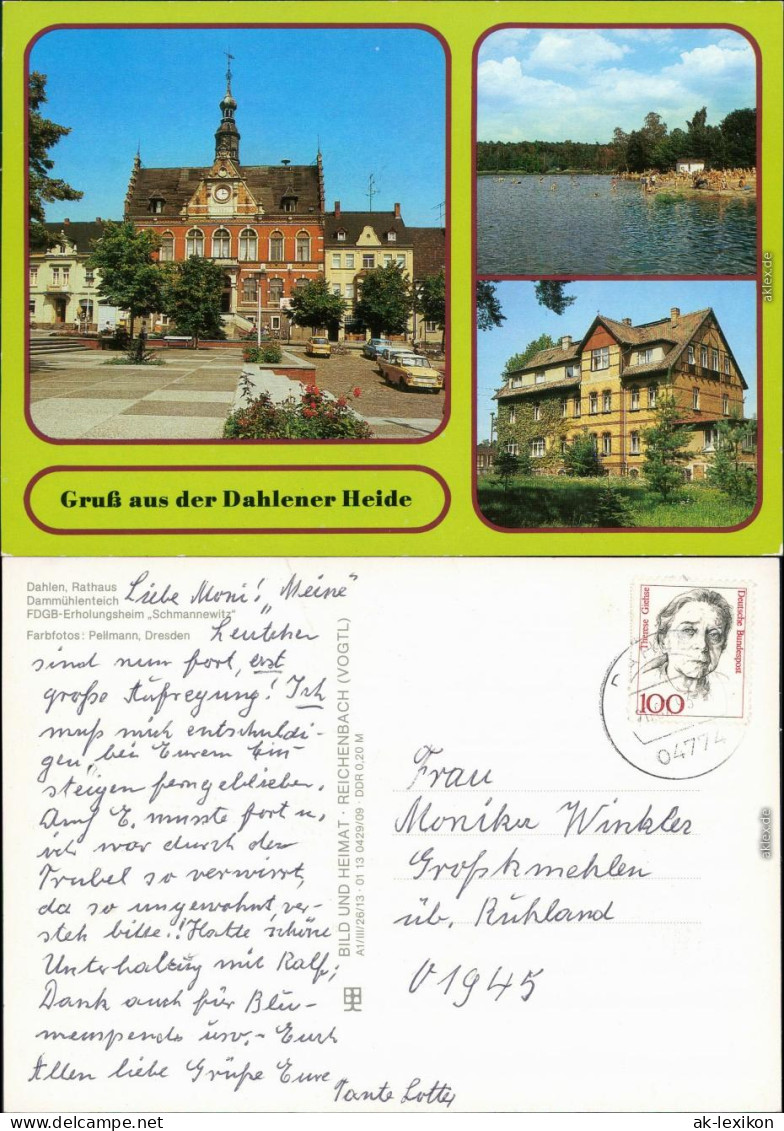 Gruß aus der Dahlener Heide
aklex.de
Dahlen, Rathaus
Dammühlenteich
FDGB-Erholungsheim „Schmannewitz"
Farbfotos: Pellmann, Dresden
Liebe Moni! „Meine"
Leutchen
sind nun fort, erst
große Aufregung! Ich
muß mich entschuldi-
gen, bei Eurem Ein-
steigen ferngeblieben.
Auf E. musste fort u.
ich war durch den
Trubel so verwirrt,
da so ungewohnt, ver-
steh bitte!! Hatte schöne
Unterhaltung mit Ralf;
Dank auch für Blu-
menspende usw. – Euch
Allen liebe Grüße Eure
Tante Lotte
BILD UND HEIMAT · REICHENBACH (VOGTL)
A1/III/26/13 · 01 13 0429/09 · DDR 0,20 M
Therese Giehse
Deutsche Bundespost
100
04774
Frau
Monika Winkler
Großkmehlen
üb. Ruhland
O 1945
aklex.de
ak-lexikon